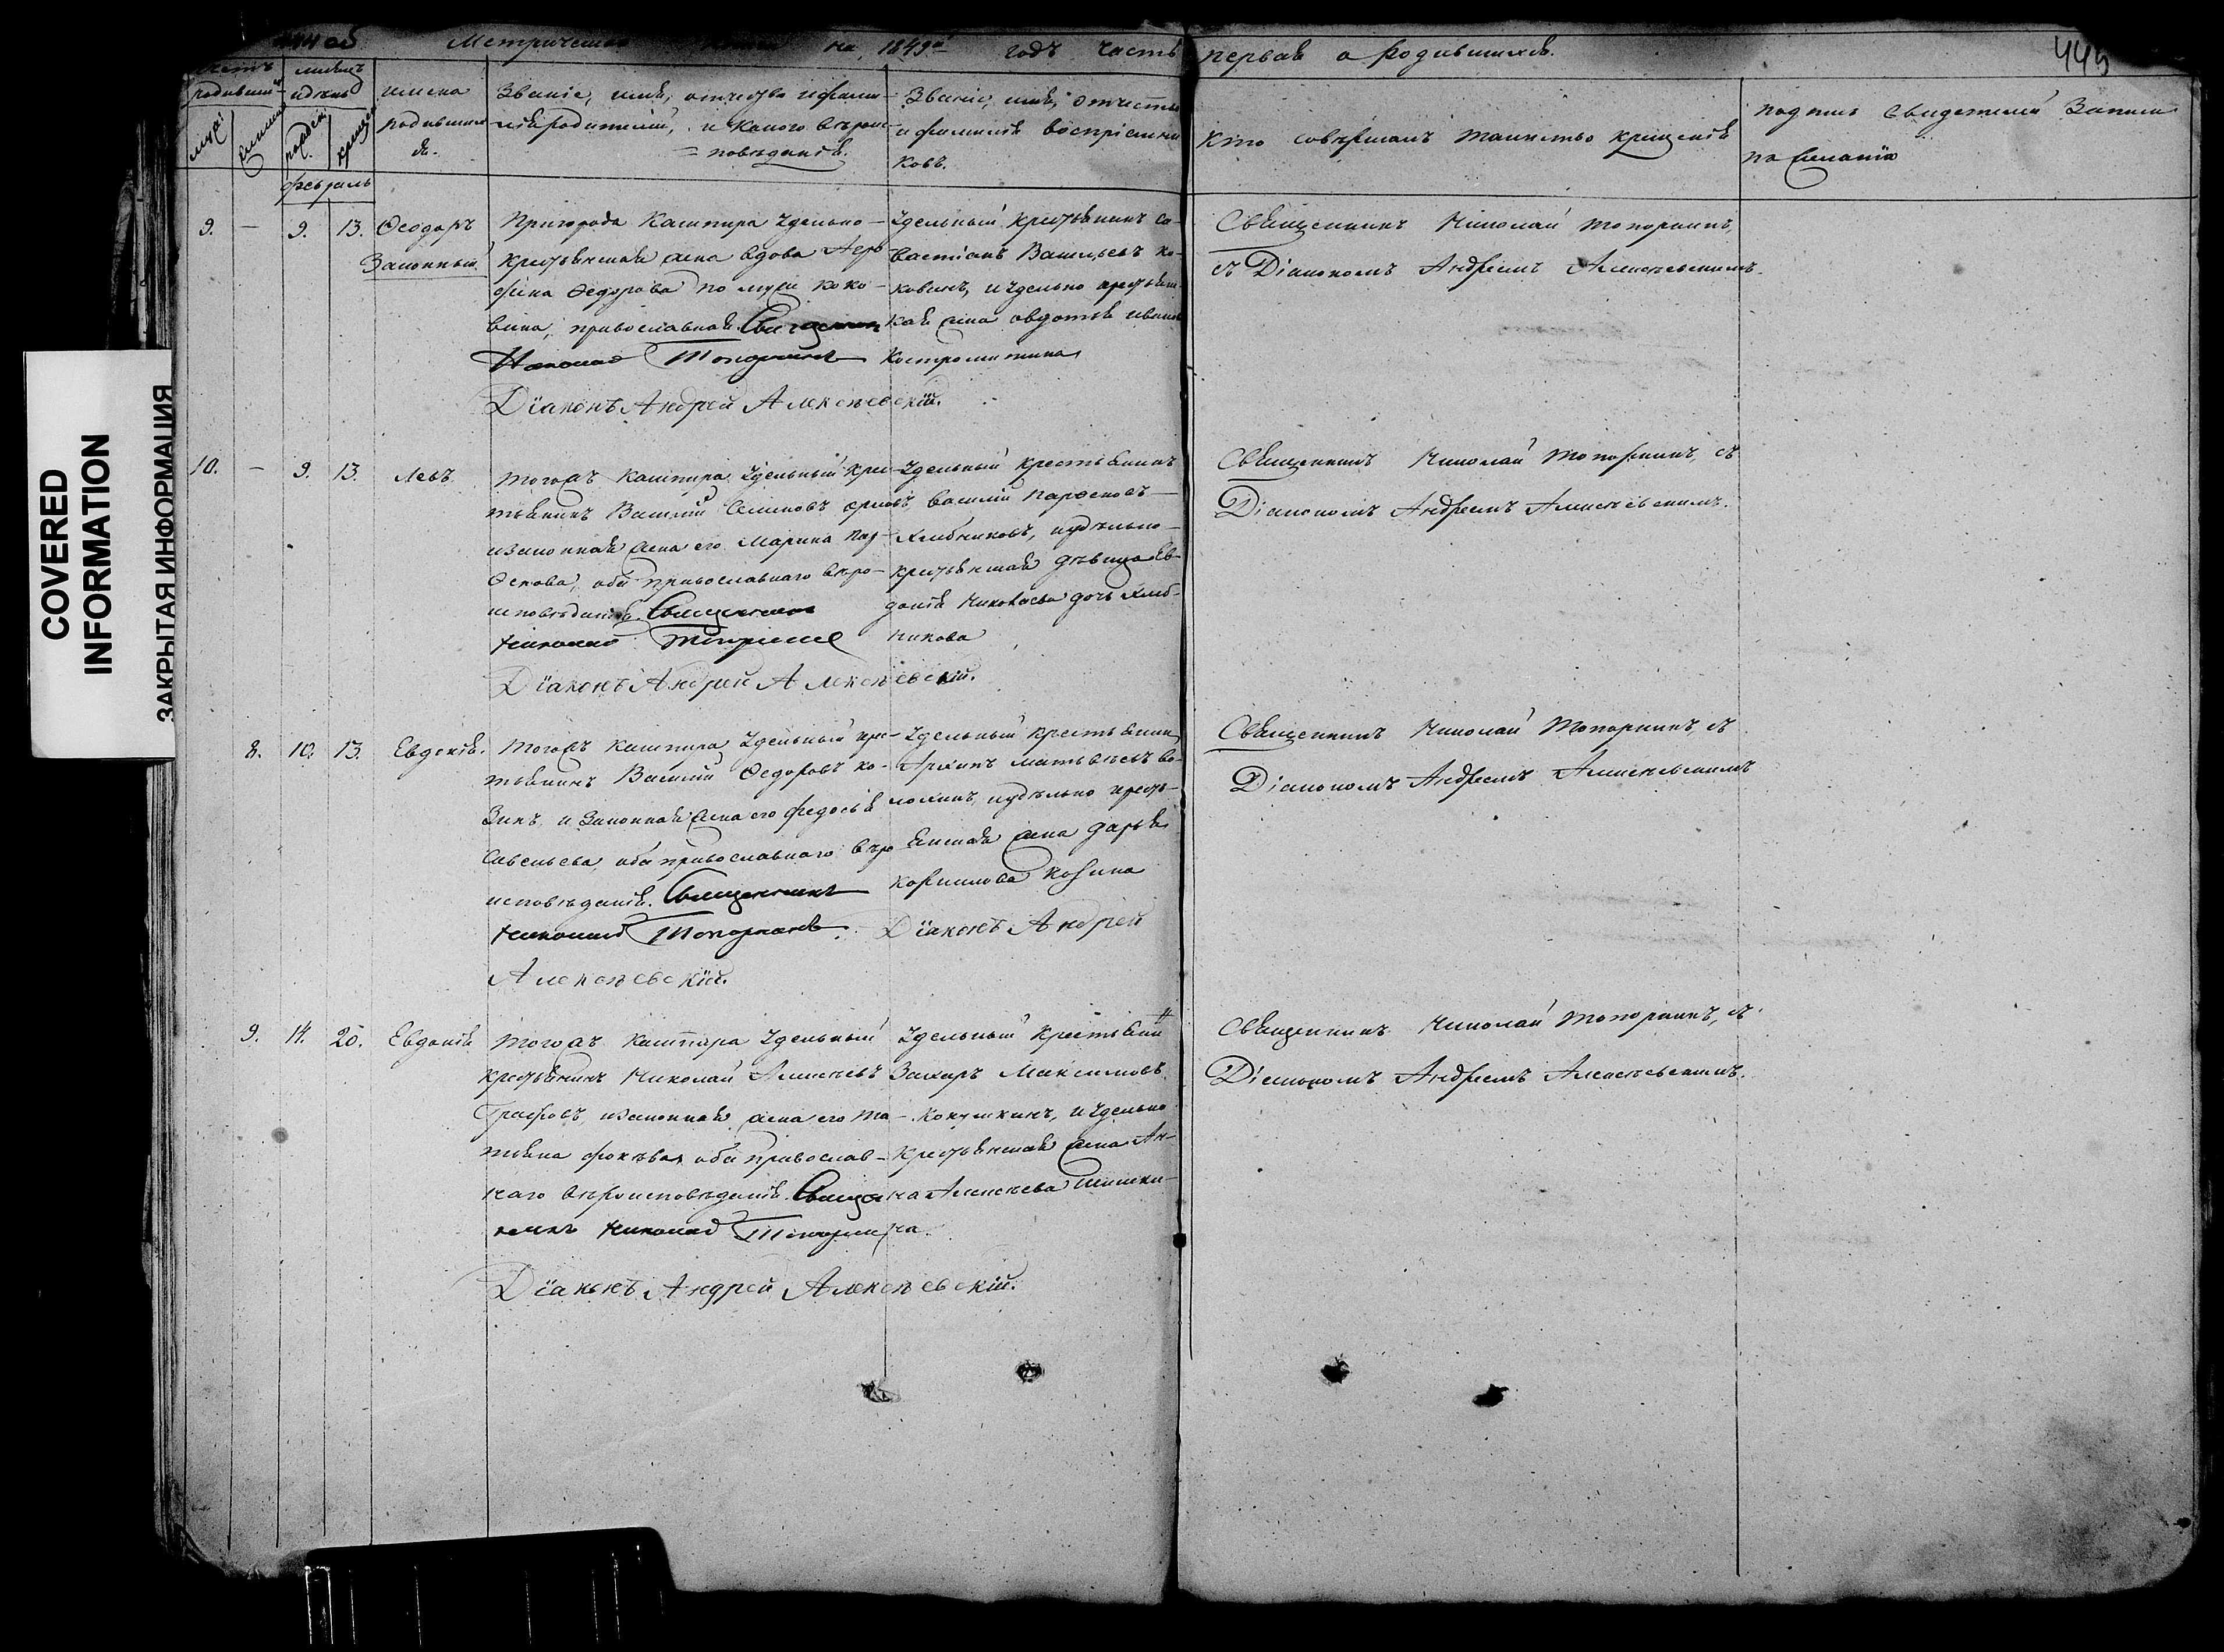 444 об
Метрическая на 1849й годъ часть первая о родившихся.
445
COVERED INFORMATION
ЗАКРЫТАЯ ИНФОРМАЦИЯ
Счетъ родивших
муж:
женска
мѣсяцъ и день
рожден:
крещен
имена родивших ся.
Званіе, имя, отчество и фами-
лія родителей, и какого вѣроис-
=повѣданія.
Званіе, имя, отчество
и фамилія воспріемни
ковъ.
Кто совершалъ таинство крещенія
подпись свидетелей записи
по желанію
февраль
9. — 9. 13. Ѳеодоръ
Законный
Пригорода Кашпира Удельно-
крестьянская жена вдова Агра
фина Ѳедорова по мужу Коко-
вина, православная. Священникъ
Николай Топорнинъ
Діаконъ Андрей Алексѣевскій.
Удельный крестьянинъ Са-
вастіанъ Васильевъ Ко-
ковинъ, и Удельно крестьян-
кая жена Авдотья Иванов
Костромитина
Священникъ Николай Топорнинъ,
съ Діакономъ Андреемъ Алексѣевскимъ.
10. — 9. 13. Левъ
Тогожъ Кашпира Удельный кре-
стьянинъ Василій Семеновъ
и законная жена его Марина Пар-
ѳенова, оба православнаго вѣро-
исповѣданія. Священникъ
Николай Топорнинъ
Діаконъ Андрей Алексѣевскій.
Удельный крестьянинъ
Василій Парѳеновъ
Хлебниковъ, и удѣльно-
крестьянская дѣвица Ев-
докія Николаева дочь Хлеб-
никова
Священникъ Николай Топорнинъ, съ
Діакономъ Андреемъ Алексѣевскимъ.
8. 10. 13. Евдокія.
Тогожъ Кашпира Удельный кре-
стьянинъ Василій Ѳедоровъ Ко-
зинъ, и законная жена его Федосья
Савельева, оба православнаго вѣро
исповѣданія. Священникъ
Николай Топорнинъ.
Діаконъ Андрей
Алексѣевскій.
Удельный крестьянин
Архипъ Матвѣевъ Во-
лохинъ, и удѣльно кресть-
янская жена Дарья
Корнилова Козина
Священникъ Николай Топорнинъ, съ
Діакономъ Андреемъ Алексѣевскимъ
9. 14. 20. Евдокія
Тогожъ Кашпира Удельный
крестьянинъ Николай Алексѣевъ
Графовъ, и законная жена его Та-
тьяна Фокѣева оба православ-
наго вѣроисповѣданія. Священ
никъ Николай Топорнинъ
Діаконъ Андрей Алексѣевскій.
Удельный крестьянин
Захаръ Максимовъ
Кокушкинъ, и Удельно
крестьянская жена Ан-
на Алексѣева Шишки-
на.
Священникъ Николай Топорнинъ, съ
Діакономъ Андреемъ Алексѣевскимъ.